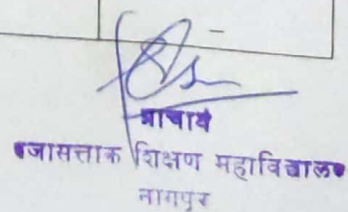 प्राचार्य
प्रजासत्ताक शिक्षण महाविद्यालय
नागपूर